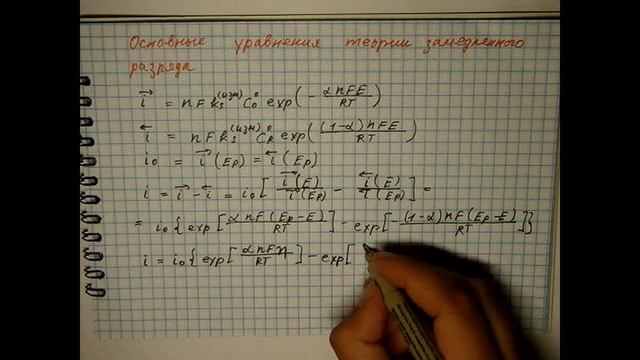 Основные уравнения теории замедленного
разряда
i⃗ = nFkₛ⁽ᴵᶻᴹ⁾C₀⁰ exp(-αnFE/RT)
i⃖ = nFkₛ⁽ᴵᶻᴹ⁾C_R⁰ exp((1-α)nFE/RT)
i₀ = i⃗(Eₚ) = i⃖(Eₚ)
i = i⃗ - i⃖ = i₀[i⃗(E)/i⃗(Eₚ) - i⃖(E)/i⃖(Eₚ)] =
= i₀{exp[αnF(Eₚ-E)/RT] - exp[-(1-α)nF(Eₚ-E)/RT]}
i = i₀{exp[αnFη/RT] - exp[